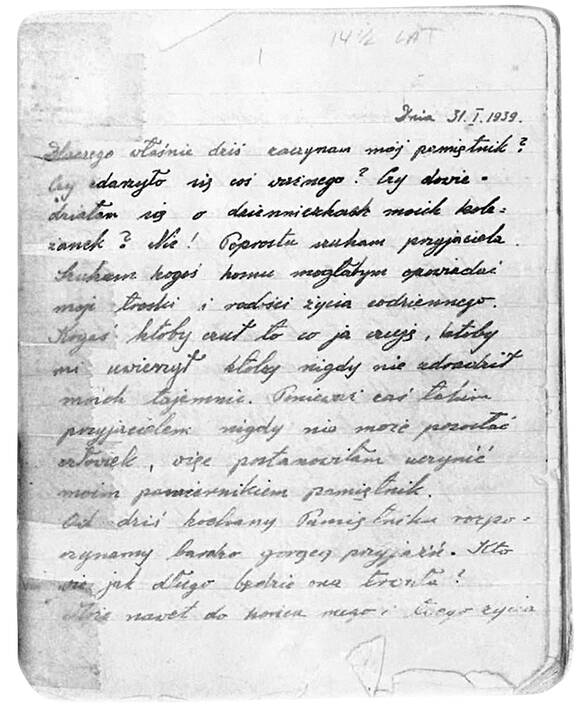 14 ½ LAT
1
Dnia 31.I.1939.
Dlaczego właśnie dziś zaczynam mój pamiętnik?
Czy zdarzyło się coś ważnego? Czy dowie-
działam się o dzienniczkach moich kole-
żanek? Nie! Poprostu szukam przyjaciela.
Szukam kogoś komu mogłabym opowiadać
moje troski i radości życia codziennego.
Kogoś ktoby czuł to co ja czuję, ktoby
mi uwierzył ktoby nigdy nie zdradził
moich tajemnic. Ponieważ takim
przyjacielem nigdy nie może pozostać
człowiek, więc postanowiłam uczynić
moim powiernikiem pamiętnik.
Od dziś kochany Pamiętniku rozpo-
czynamy bardzo gorącą przyjaźń. Kto
wie jak długo będzie ona trwała?
Może nawet do końca mego i twego życia